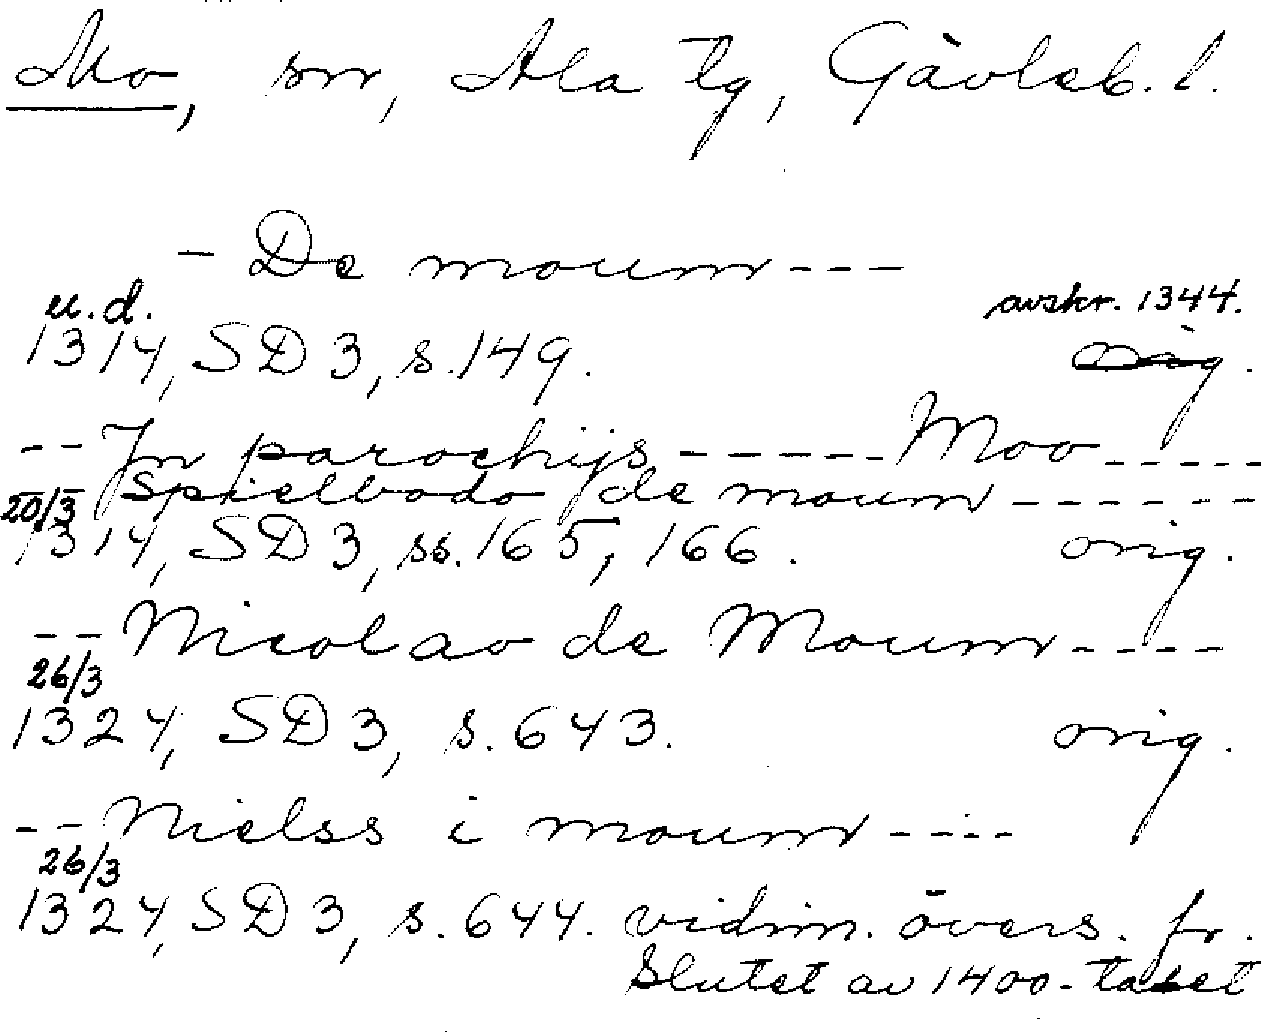 Mo, sn, Ala tg, Gävleb. l.
- De moum ---
u.d. avskr. 1344.
1314, SD 3, s. 149. orig.
-- Jn parochijs ------ Moo -----
Spielbodo de moum ------
20/3
1314, SD 3, ss. 165, 166. orig.
-- Nicolao de Moum ----
26/3
1324, SD 3, s. 643. orig.
-- Nielss i moum ----
26/3
1324, SD 3, s. 644. vidim. övers. fr.
Slutet av 1400-talet